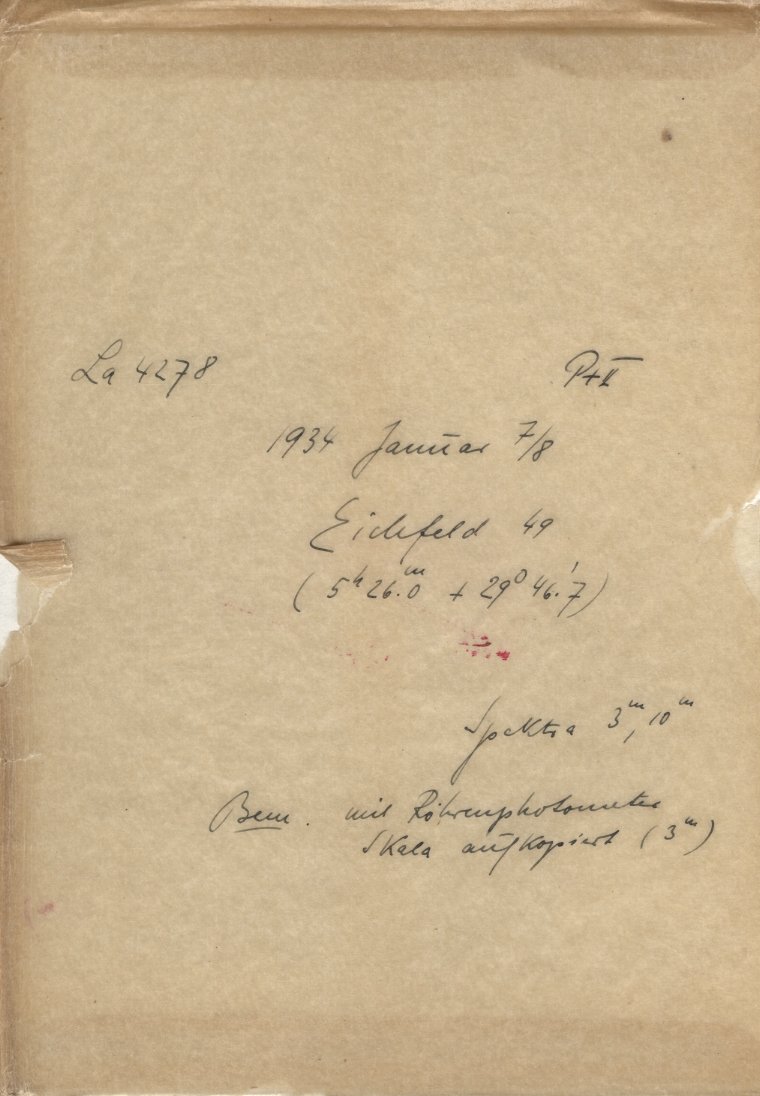 La 4278 P+II
1934 Januar 7/8
Eichfeld 49
(5ʰ26.ᵐ0 + 29⁰46.′7)
Spektra 3ᵐ, 10ᵐ
Bem. mit Röhrenphotometer
Skala aufkopiert (3ᵐ)